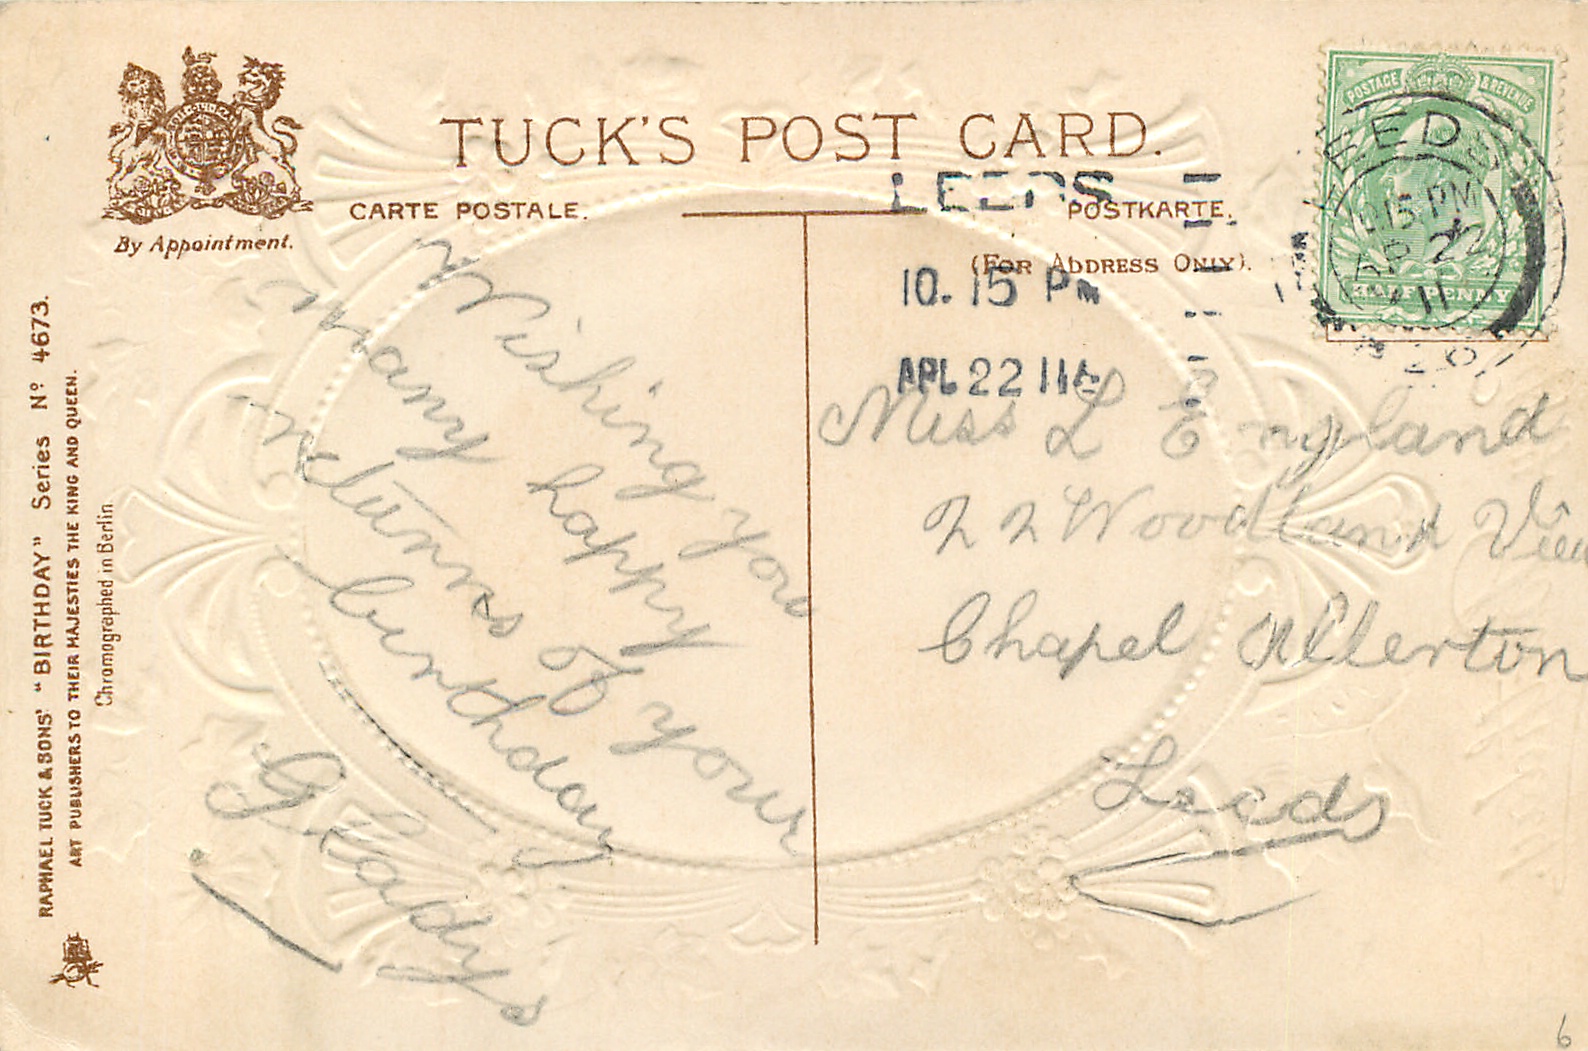 TUCK'S POST CARD.
CARTE POSTALE.
POSTKARTE.
(FOR ADDRESS ONLY).
By Appointment.
RAPHAEL TUCK & SONS' "BIRTHDAY" Series Nº 4673.
ART PUBLISHERS TO THEIR MAJESTIES THE KING AND QUEEN.
Chromographed in Berlin
POSTAGE & REVENUE
HALFPENNY
LEEDS
10.15 PM
AP 22
11
LEEDS
10.15 PM
APL 22 11
Wishing you
many happy
returns of your
birthday
Gladys
Miss L England
22 Woodland View
Chapel Allerton
Leeds
6